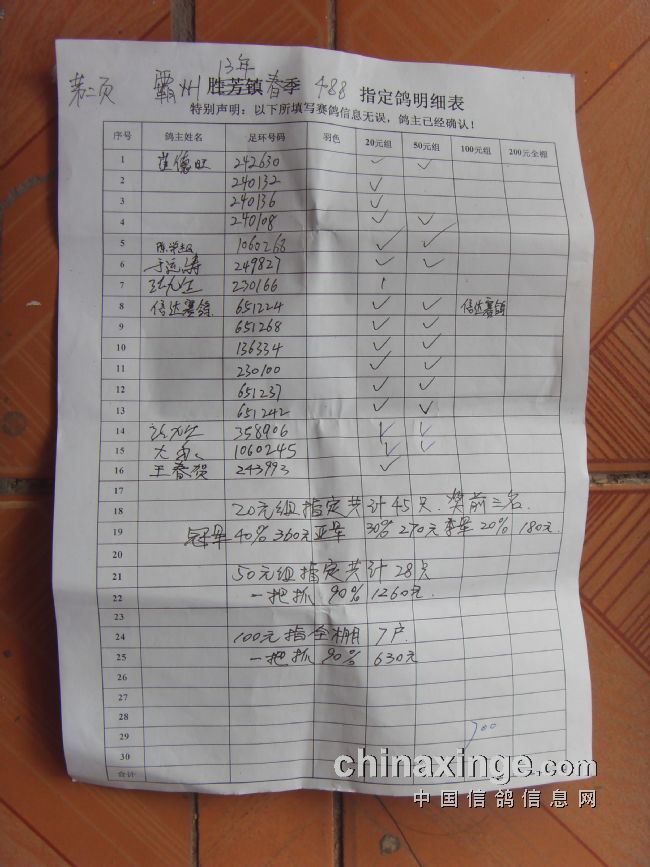 13年
第二页 霸州 胜芳镇春季 488 指定鸽明细表
特别声明：以下所填写赛鸽信息无误，鸽主已经确认！
序号 鸽主姓名 足环号码 羽色 20元组 50元组 100元组 200元全棚
1 崔德旺 242630 ✓ ✓
2 240132 ✓
3 240136 ✓
4 240108 ✓ ✓
5 1060268 ✓ ✓
6 于运涛 249827 ✓ ✓
7 230166
8 信达赛鸽 651224 ✓ ✓ 信达赛鸽
9 651268 ✓ ✓
10 136334 ✓ ✓
11 230100 ✓ ✓
12 651237 ✓ ✓
13 651242 ✓ ✓
14 358906 ✓ ✓
15 1060245 ✓ ✓
16 王春贺 243993 ✓
17
18 20元组指定共计45只.奖前三名.
19 冠军40% 360元亚军 30% 270元季军20% 180元.
20
21 50元组指定共计28只
22 一把抓 90% 1260元.
23
24 100元指全棚 7户.
25 一把抓 90% 630元
26
27
28
29 700
30
合计
chinaxinge.com
中国信鸽信息网